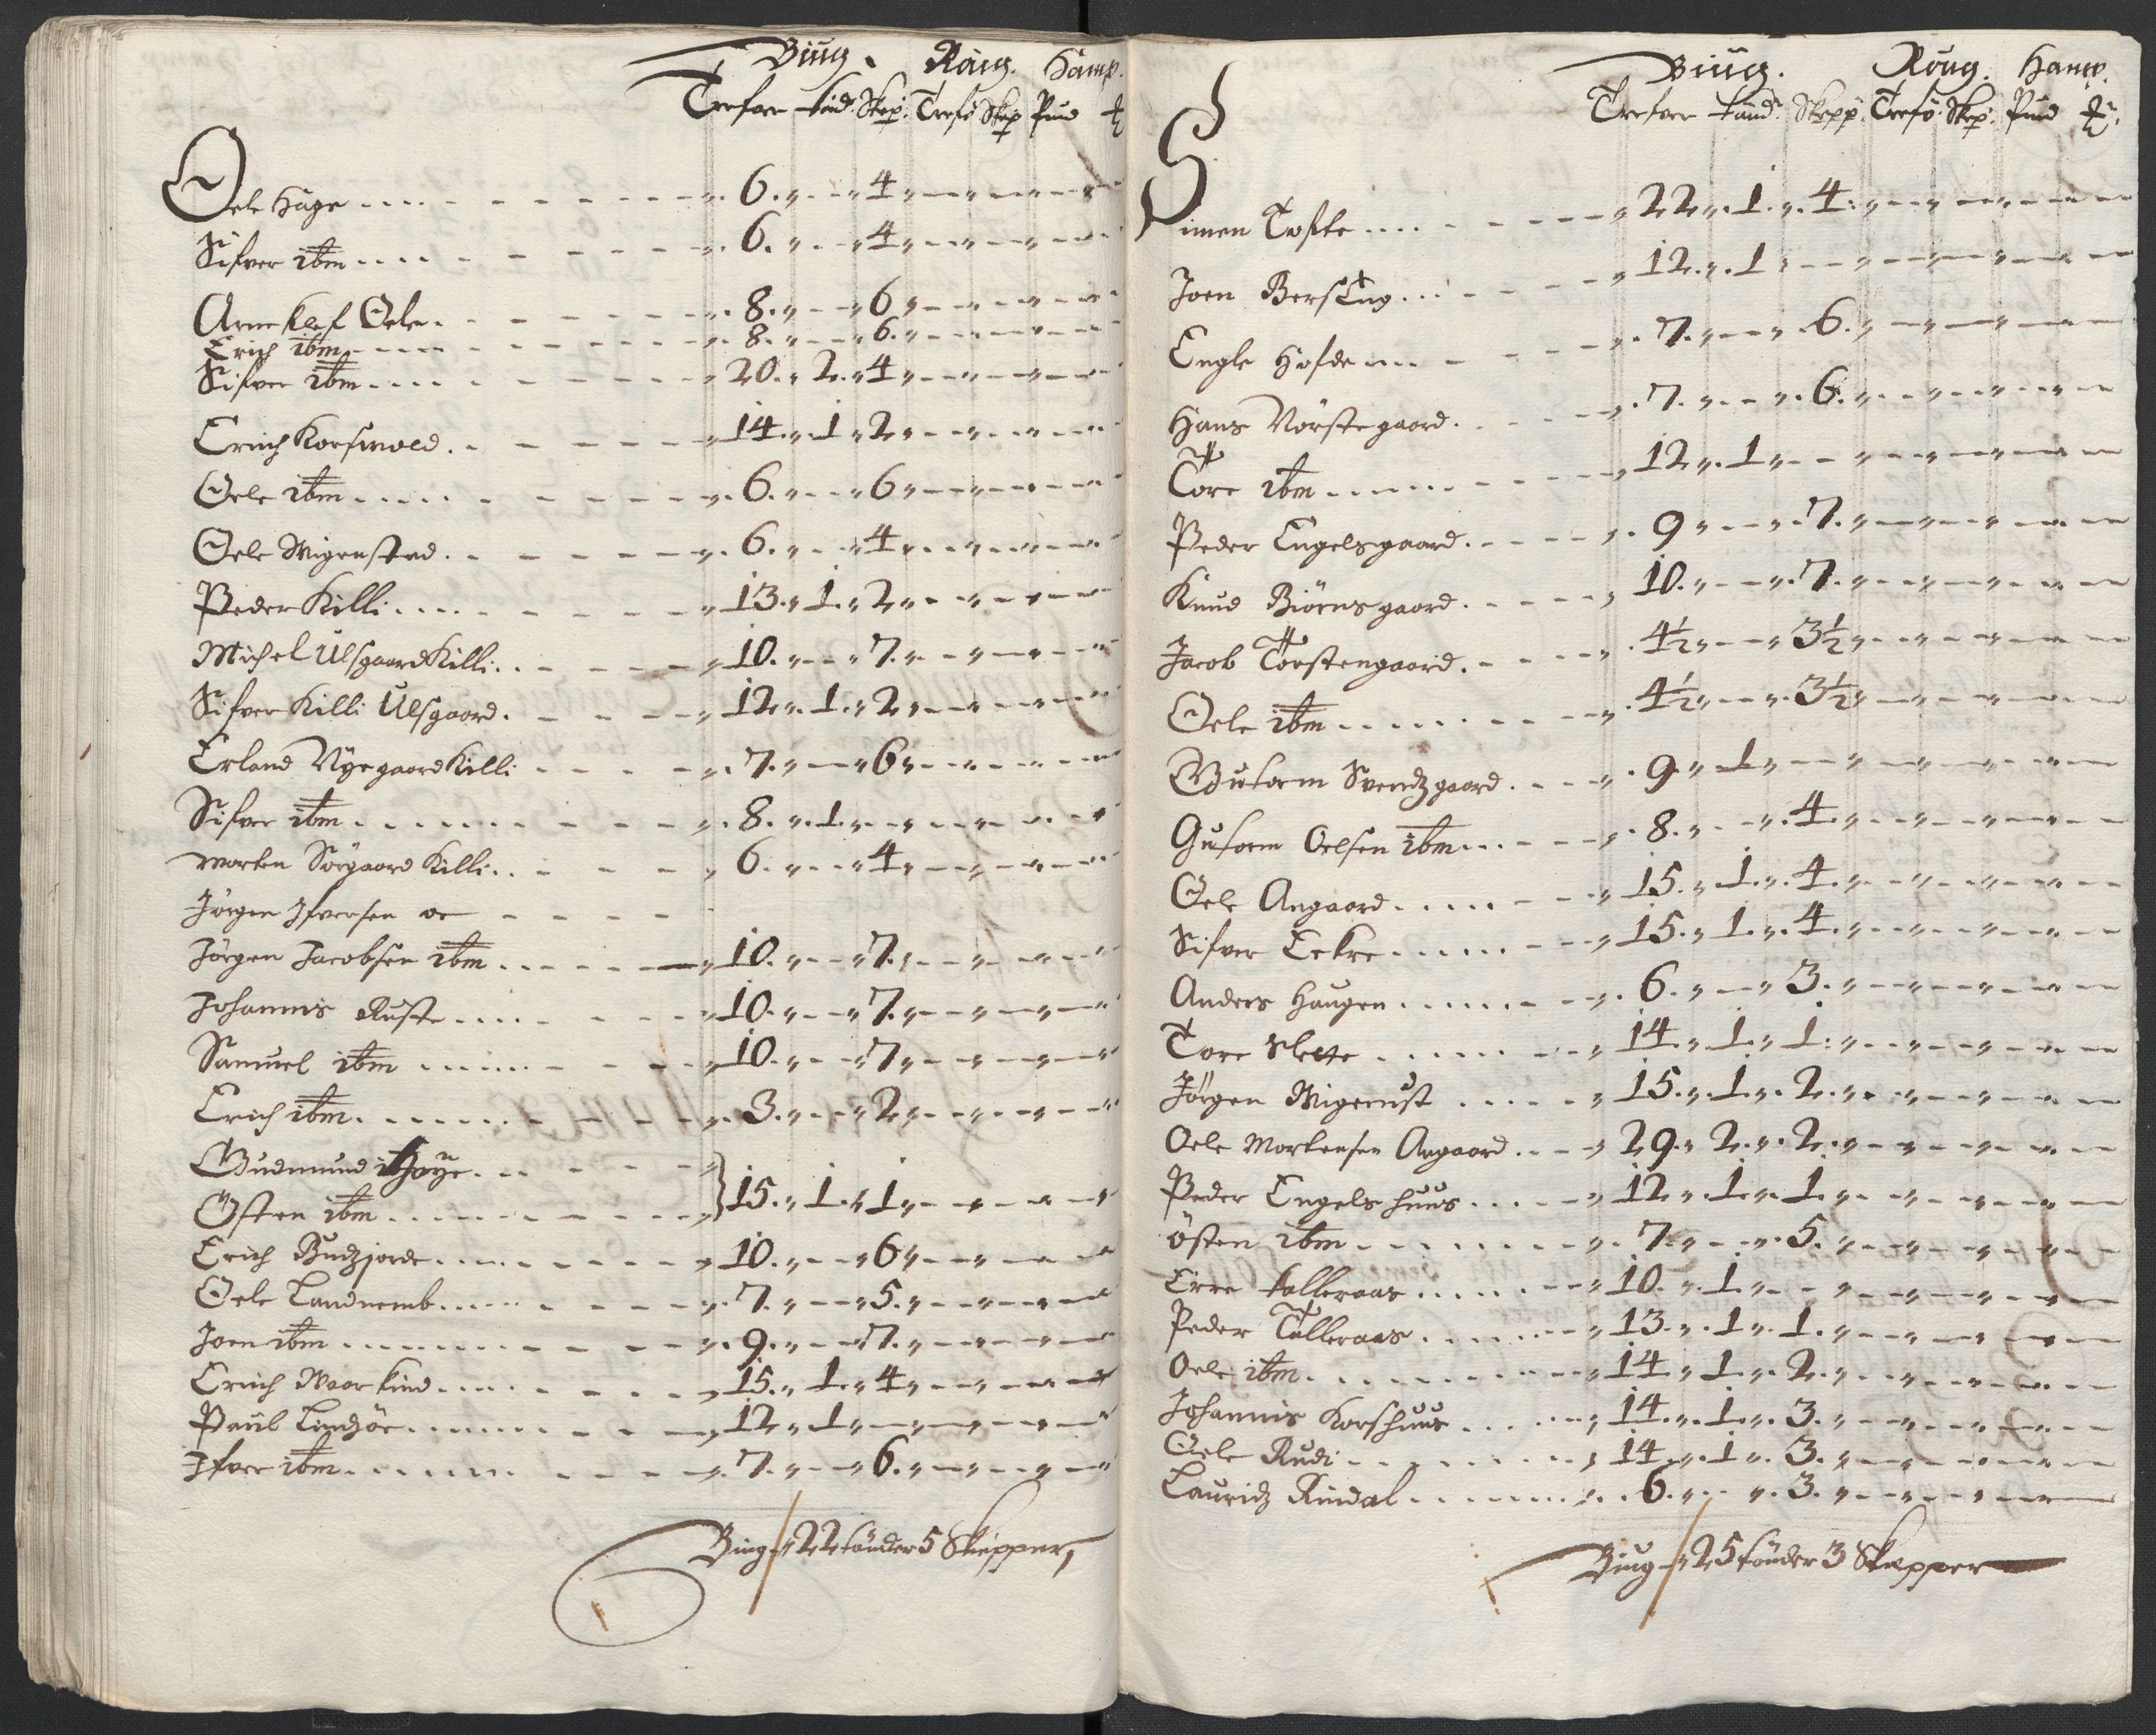 Biug. Rüug. Hamp.
Trefoer tünd: Skep: Trefo Skep Pund ℔
Oele Hage .... 6. 4
Sifver ibm .... 6. 4
Arneklef Oele. 8. 6
Erich ibm .... 8. 6.
Sifver ibm .... 20. 2. 4
Erich Korsvold. 14. 1 2
Oele ibm .... 6. 6
Oele Wigenstad. 6. 4
Peder Killi .... 13. 1. 2
Michel Ulsgaard Killi. 10. 7.
Sifver Killi Ulsgaard. 12. 1. 2
Erland Nygaard Killi 7. 6
Sifver ibm .... 8. 1.
Morten Sörgaard Killi. 6. 4
Jörgen Ifversen oc
Jörgen Jacobsen ibm .... 10. 7.
Johannis Ruste .... 10. 7.
Samuel ibm .... 10. 7
Erich ibm .... 3. 2
Gudmund Høÿe.
Östen ibm .... 15. 1. 1
Erich Budzjorde .... 10. 6
Oele Landnemb .... 7. 5.
Joen ibm .... 9. 7.
Erich Noorkind .... 15. 1. 4
Paül Lindsöe .... 12. 1
Ifver ibm .... 7. 6.
Biug 22 tönder 5 Skiepper,
Biüg. Roug. Hamp.
Trefoer tünd: Skepp: Trefo: Skep: Pund ℔.
Simen Tofte .... 22. 1. 4.
Joen Bersëng ... 12. 1
Engle Hofde .... 7. 6.
Hans Nörstegaard. 7. 6.
Töre ibm .... 12. 1
Peder Engelsgaard. 9 7.
Knud Biörnsgaard. 10. 7.
Jacob Törstengaard. 4½ 3½
Oele ibm .... 4½ 3½
Guttorm Svendzgaard. 9. 1
Gutorm Oelsen ibm .... 8. 4.
Oele Aagaard .... 15. 1. 4.
Sifver Eekre .... 15. 1. 4.
Anders Haugen .... 6. 3.
Tore Slette .... 14. 1. 1.
Jörgen Wigerust .... 15. 1. 2.
Oele Mortensen Aagaard ... 29. 2. 2.
Peder Engelshuus .... 12. 1. 1.
östen ibm .... 7. 5.
Erre talleraas .... 10. 1.
Peder Talleraas .... 13. 1. 1.
Oele ibm .... 14. 1. 2.
Johannis Korshuus .... 14. 1. 3.
Oele Rudi .... 14. 1. 3.
Lauridz Rindal .... 6. 3.
Biug 25 tönder 3 Skepper